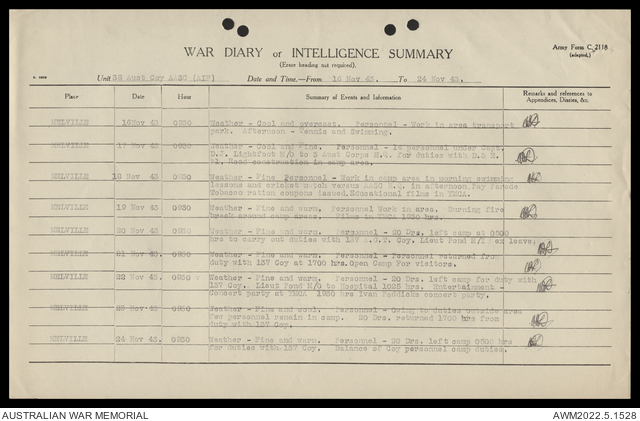 Army Form C. 2118
(adapted.)
WAR DIARY or INTELLIGENCE SUMMARY
(Erase heading not required).
Unit 38 Aust Coy AASC (AIF) Date and Time.—From 16 Nov 43. To 24 Nov 43.
Place Date Hour Summary of Events and Information Remarks and references to Appendices, Diaries, &c.
MELVILLE 16Nov 43 0930 Weather - Cool and overcast. Personnel - Work in area transport
park. Afternoon - Tennis and Swimming.
MELVILLE 17 Nov 43 0930 Weather - Cool and fine. Personnel - 14 personnel under Capt.
D.J. Lightfoot M/O to 3 Aust Corps H.Q. for duties with D & E
Pl. Road construction in camp area.
MELVILLE 18 Nov 43 0930 Weather - Fine Personnel - Work in camp area in morning swimming
lessons and cricket match versus AASC H.Q. in afternoon. Pay Parade
Tobacco ration coupons issued. Educational films in YMCA.
MELVILLE 19 Nov 43 0930 Weather - Fine and warm. Personnel Work in area. Burning fire
break around camp areas. Films in YMCA 1930 hrs.
MELVILLE 20 Nov 43 0930 Weather - Fine and warm. Personnel - 20 Drs. left camp at 0500
hrs to carry out duties with 137 G.T. Coy. Lieut Pond M/I ex leave.
MELVILLE 21 Nov 43. 0930 Weather - Fine and warm. Personnel - Personnel returned from
duty with 137 Coy at 1700 hrs. Open Camp For visitors.
MELVILLE 22 Nov 43. 0930 Weather - Fine and warm. Personnel - 20 Drs. left camp for duty with
137 Coy. Lieut Pond M/O to Hospital 1025 hrs. Entertainment -
Concert party at YMCA 1930 hrs Ivan Paddicks concert party.
MELVILLE 23 Nov 43 0930 Weather - Fine and cool. Personnel - Owing to duties outside area
few personnel remain in camp. 20 Drs. returned 1700 hrs from
duty with 137 Coy.
MELVILLE 24 Nov 43. 0930 Weather - Fine and warm. Personnel - 20 Drs. left camp 0500 hrs
for duties with 137 Coy. Balance of Coy personnel camp duties.
AUSTRALIAN WAR MEMORIAL AWM2022.5.1528